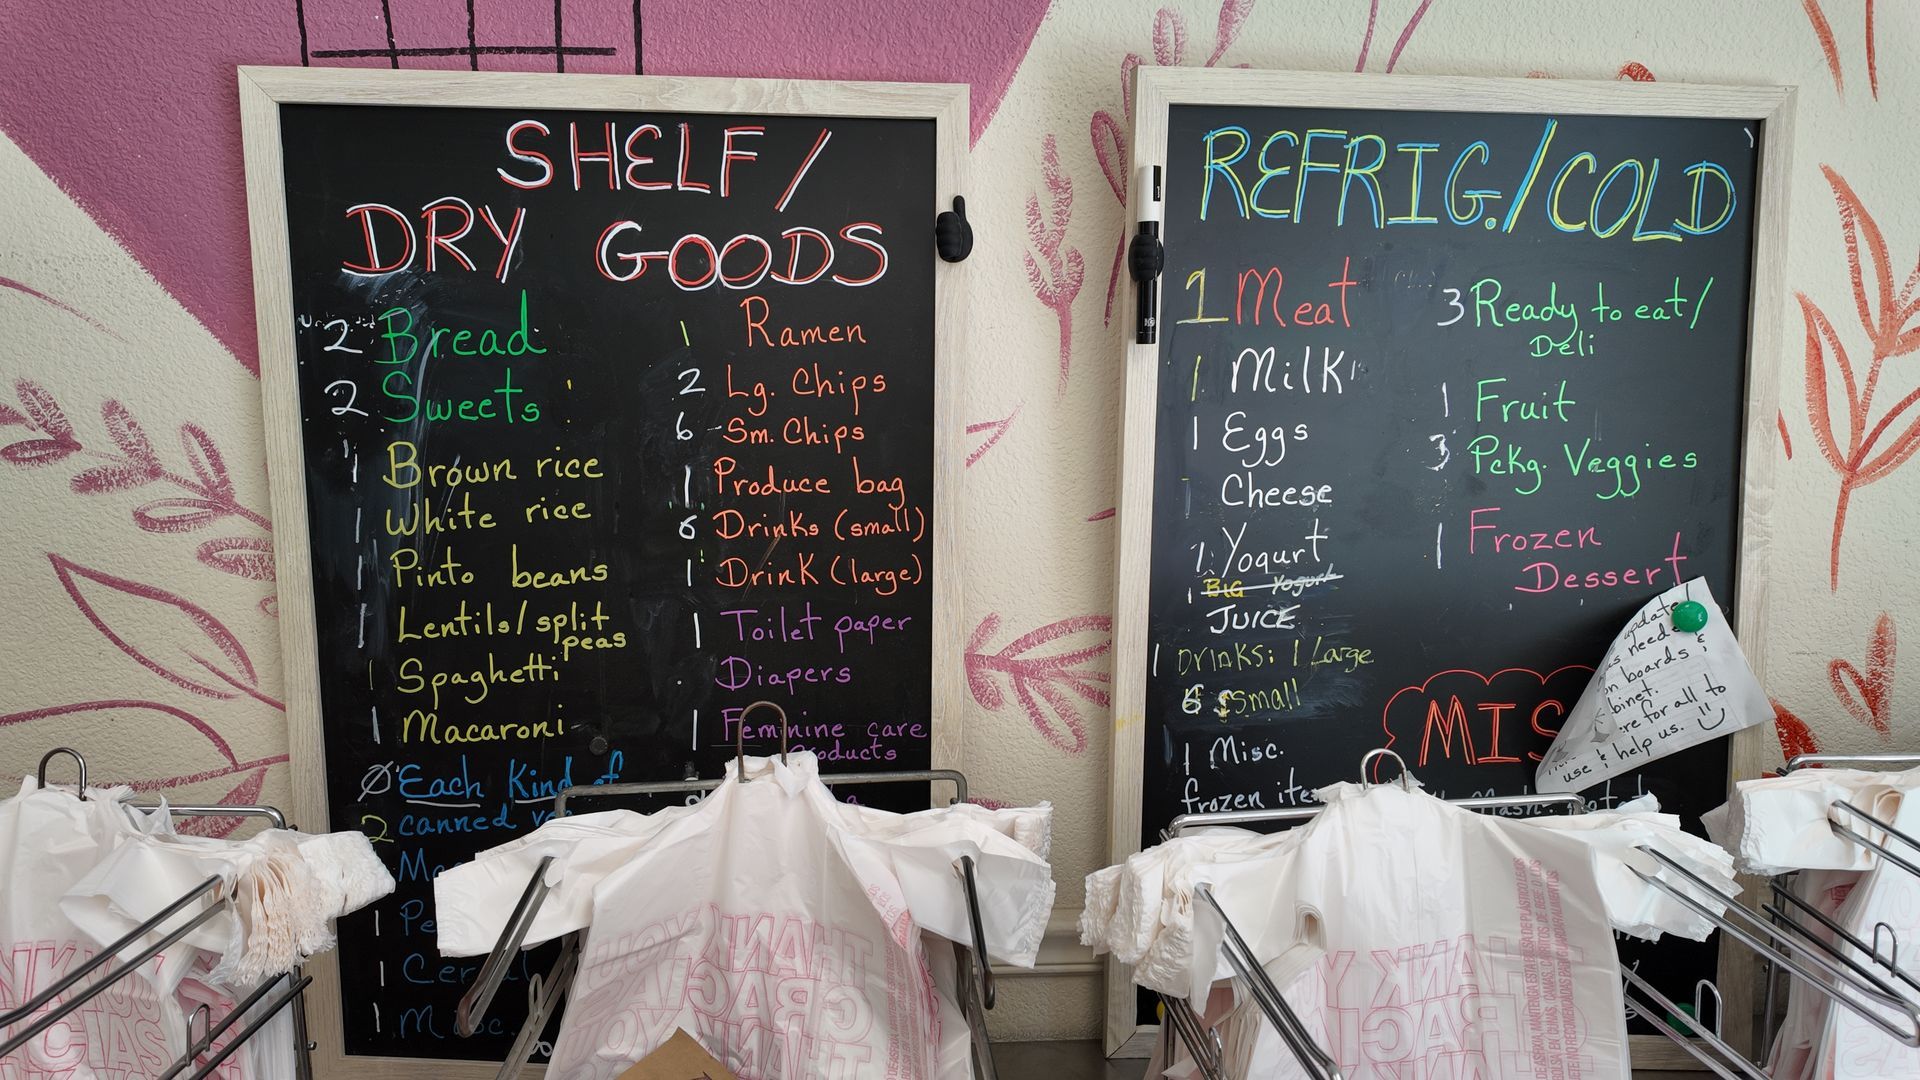 SHELF/
DRY GOODS
2 Bread
2 Sweets
1 Brown rice
1 White rice
1 Pinto beans
1 Lentils/split
peas
1 Spaghetti
1 Macaroni
Ø Each Kind of
2 canned
1
1 Cereal
1 Misc.
1 Ramen
2 Lg. Chips
6 Sm. Chips
1 Produce bag
6 Drinks (small)
1 Drink (large)
1 Toilet paper
Diapers
1 Feminine care
products
REFRIG./COLD
1 Meat
1 Milk
1 Eggs
Cheese
1 Yogurt
1 BIG Yogurt
JUICE
1 Drinks: 1 Large
6 small
1 Misc.
frozen
3 Ready to eat/
Deli
1 Fruit
3 Pckg. Veggies
1 Frozen
Dessert
MIS
Mash.
update
needed
on boards &
for all to
use & help us.
THANK YOU
GRACIAS
THANK YOU